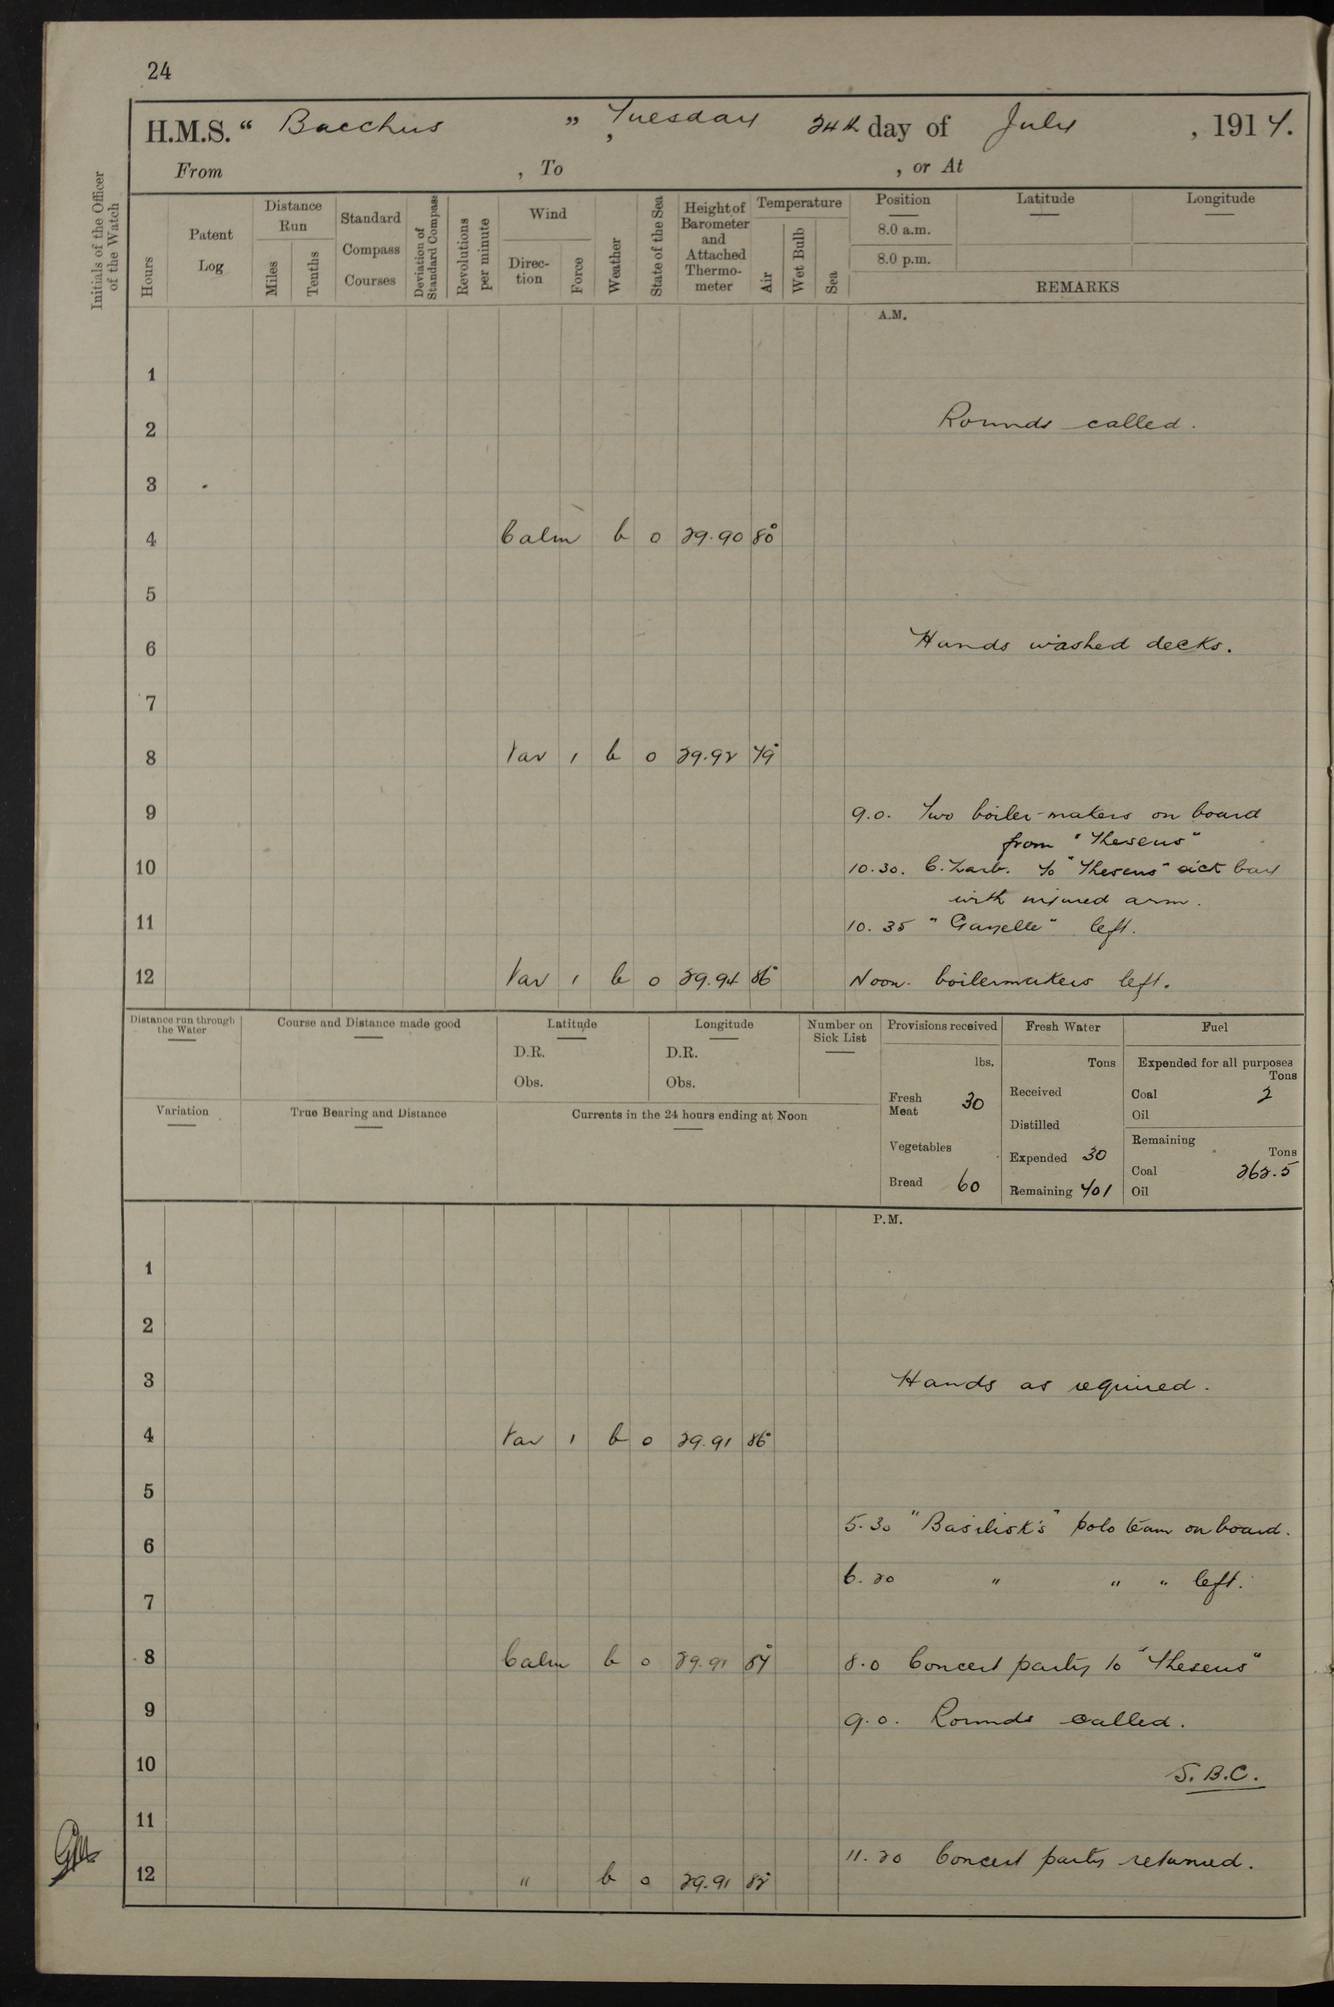 24
H.M.S. “ Bacchus ” , Tuesday 24th day of July , 1917.
From , To , or At
Initials of the Officer of the Watch
Hours
Patent Log
Distance Run
Miles
Tenths
Standard Compass Courses
Deviation of Standard Compass
Revolutions per minute
Wind
Direction
Force
Weather
State of the Sea
Height of Barometer and Attached Thermometer
Temperature
Air
Wet Bulb
Sea
Position
8.0 a.m.
8.0 p.m.
Latitude
Longitude
REMARKS
A.M.
1
2 Rounds called.
3
4 Calm b 0 29.90 80°
5
6 Hands washed decks.
7
8 Var 1 b 0 29.92 79°
9 9.0. Two boiler-makers on board
from "Theseus"
10 10.30. C. Zarb. to "Theseus" sick bay
with injured arm.
11 10.35 "Gazelle" left.
12 Var 1 b 0 29.94 86° Noon. boilermakers left.
Distance run through the Water
Course and Distance made good
Latitude
D.R.
Obs.
Longitude
D.R.
Obs.
Number on Sick List
Variation
True Bearing and Distance
Currents in the 24 hours ending at Noon
Provisions received
lbs.
Fresh Meat 30
Vegetables
Bread 60
Fresh Water
Tons
Received
Distilled
Expended 30
Remaining 701
Fuel
Expended for all purposes
Tons
Coal 2
Oil
Remaining
Tons
Coal 262.5
Oil
P.M.
1
2
3 Hands as required.
4 Var 1 b 0 29.91 86°
5
5.30 "Basilisk's" polo team on board.
6
6.20 " " " left.
7
8 Calm b 0 29.91 84° 8.0 Concert party to "Theseus"
9 9.0. Rounds called.
10 S.B.C.
11
11.20 Concert party returned.
12 " b 0 29.91 82°